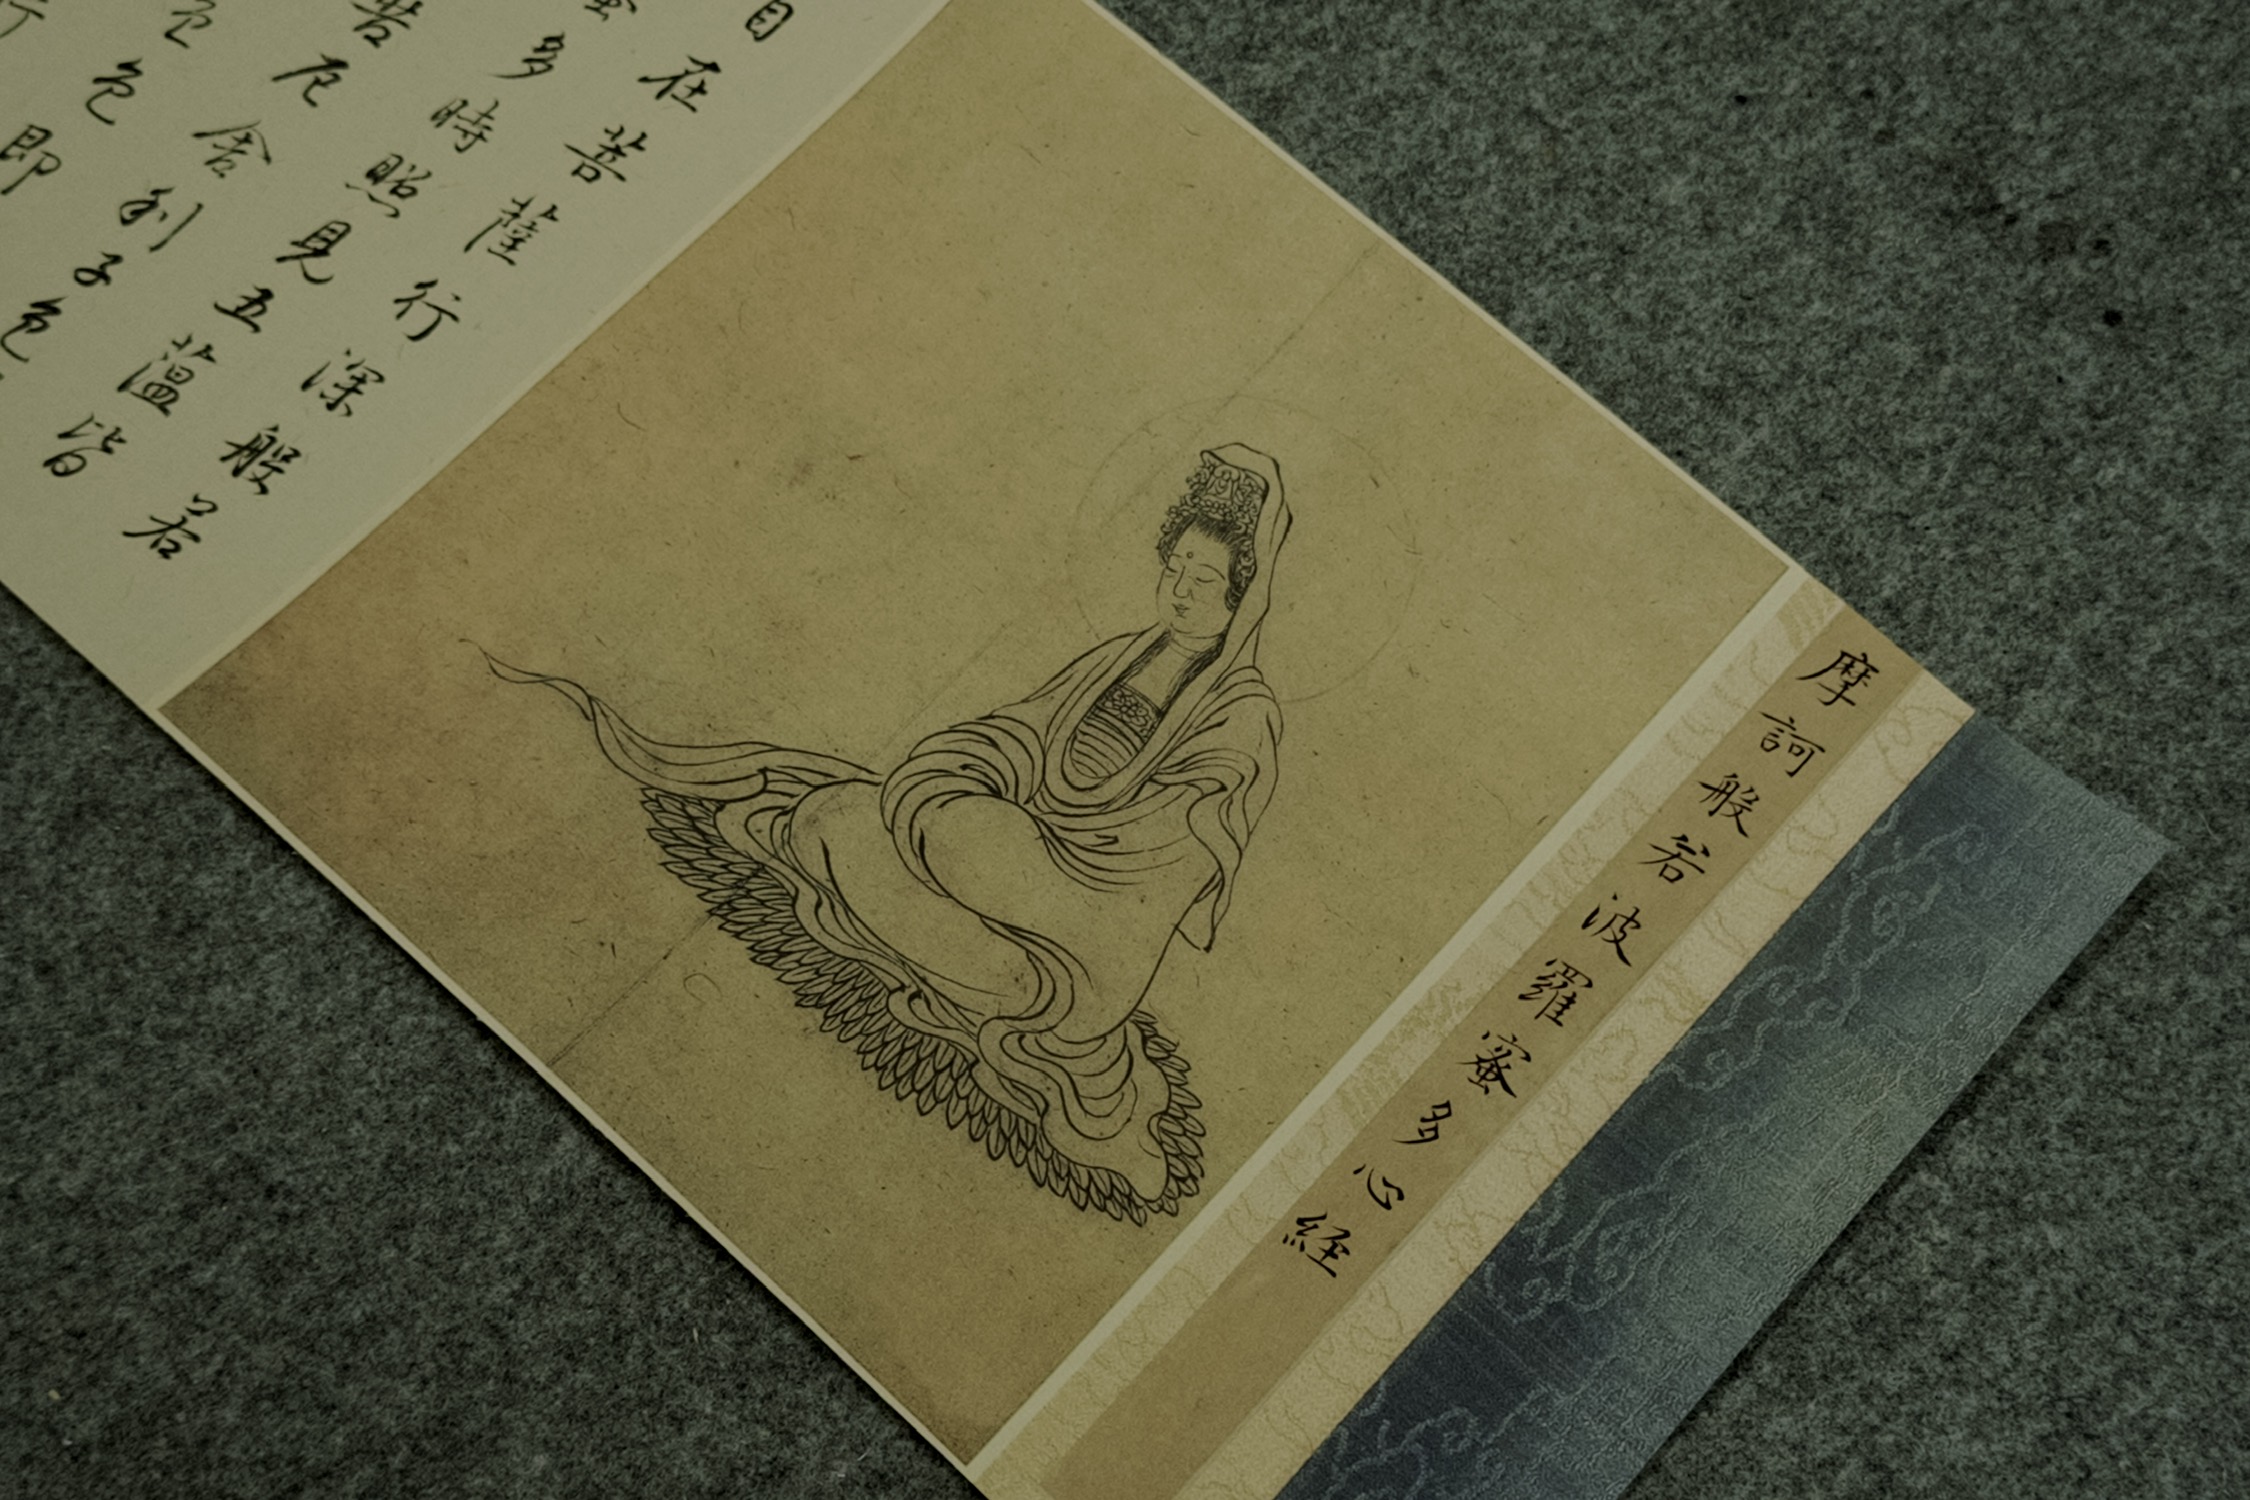 摩訶般若波羅蜜多心経
自在菩薩行深般若
蜜多時照見五蕰皆
苦厄舍利子色
色色即
行